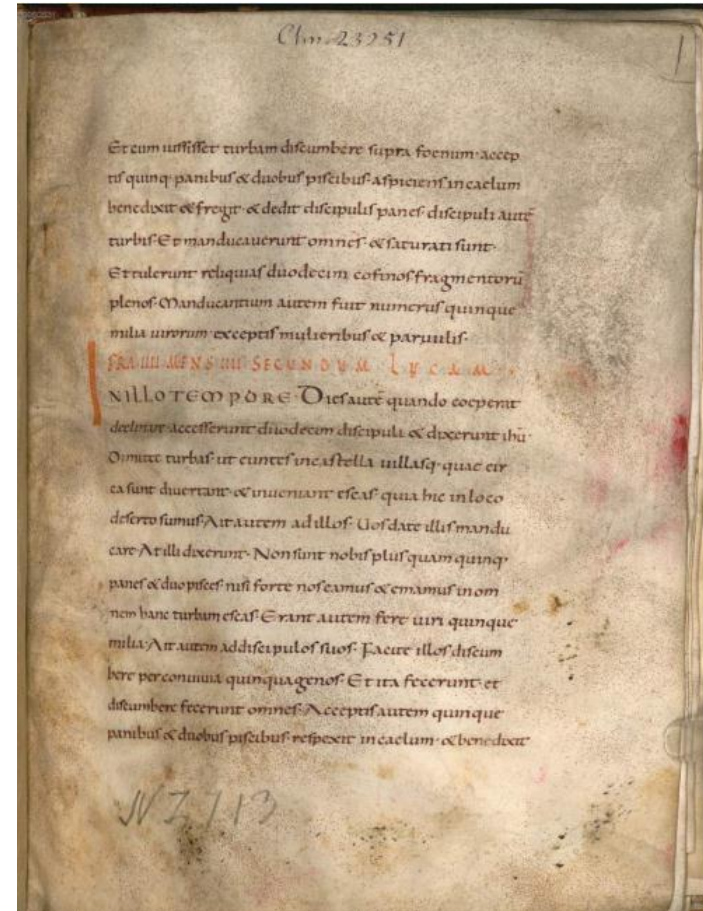 Clm. 23251
1
Et cum iussisset turbam discumbere supra foenum· accep
tis quinq· panibus & duobus piscibus· aspiciens in caelum
benedixit & fregit· & dedit discipulis panes· discipuli autē
turbis· Et manducauerunt omnes· & saturati sunt·
Et tulerunt reliquias duodecim cofinos fragmentorū
plenos· Manducantium autem fuit numerus quinque
milia uirorum· exceptis mulieribus & paruulis·
SECUNDUM LUCAM·
INILLO TEMPORE· Dies autē quando coeperat
declinare· accesserunt duodecim discipuli & dixerunt ihū·
Dimitte turbas· ut euntes in castella uillasq· quae cir
ca sunt diuertant· & inueniant escas· quia hic in loco
deserto sumus· Ait autem ad illos· Uos date illis mandu
care· At illi dixerunt· Non sunt nobis plus quam quinq·
panes & duo pisces· nisi forte nos eamus & emamus in om
nem hanc turbam escas· Erant autem fere uiri quinque
milia· Ait autem ad discipulos suos· Facite illos discum
bere per conuiuia quinquagenos· Et ita fecerunt· et
discumbere fecerunt omnes· Acceptis autem quinque
panibus & duobus piscibus· respexit in caelum· & benedixit
NZ 713